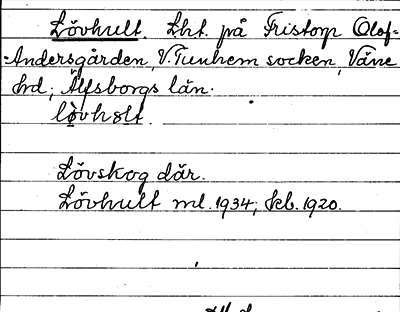 Lövhult. Lht. på Fristorp Olof-
Andersgården, V. Tunhem socken, Väne
hd; Älfsborgs län.
lövhult.
Lövskog där.
Lövhult ml. 1934; skb. 1920.